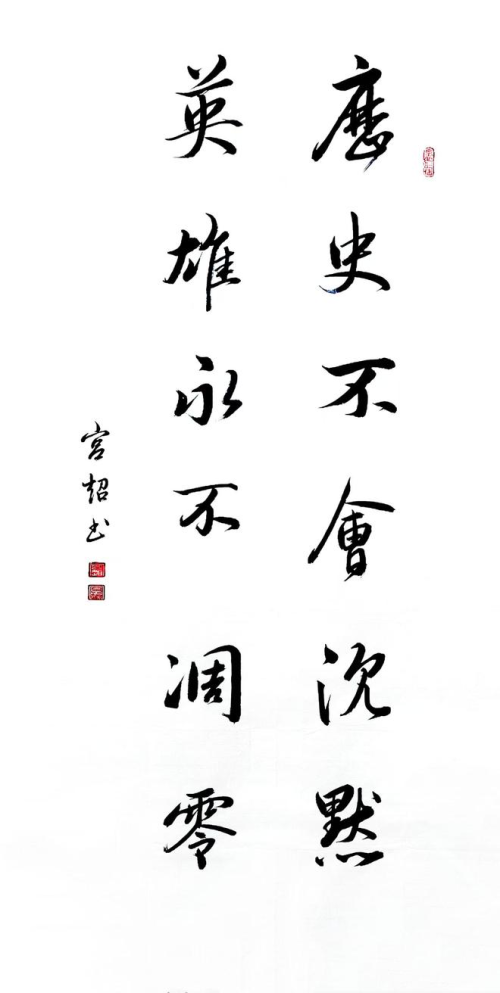 歷史不會沉默
英雄永不凋零
宮超书